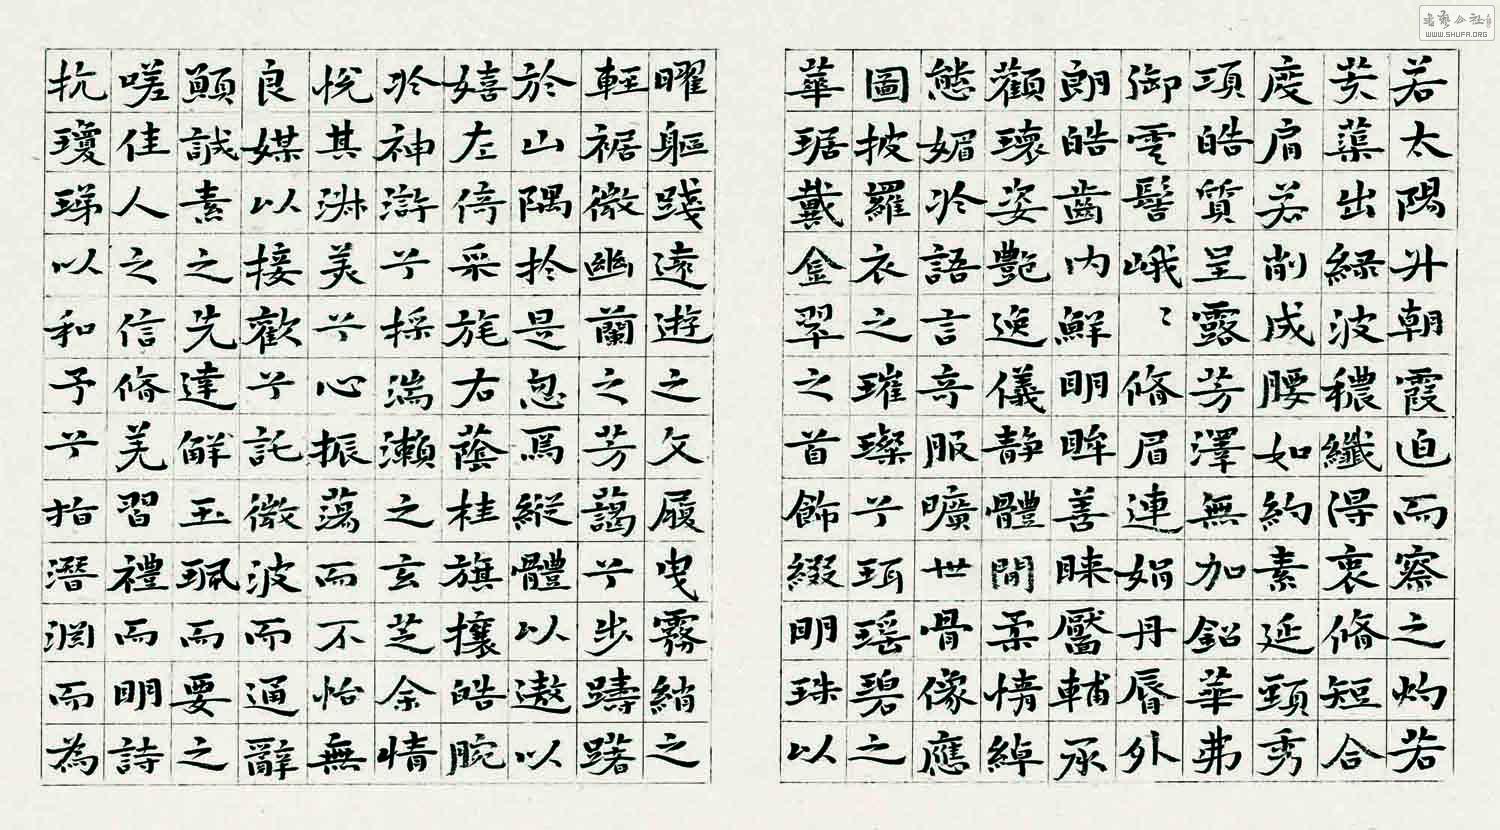 若太陽升朝霞迫而察之灼若
芙蕖出綠波穠纖得衷脩短合
度肩若削成腰如約素延頸秀
項皓質呈露芳澤無加鉛華弗
御雲髻峨〻脩眉連娟丹脣外
朗皓齒內鮮明眸善睞靨輔承
顴瓌姿艷逸儀靜體閒柔情綽
態媚於語言奇服曠世骨像應
圖披羅衣之璀璨兮珥瑤碧之
華琚戴金翠之首飾綴明珠以
曜軀踐遠遊之文履曳霧綃之
輕裾微幽蘭之芳藹兮步躊躇
於山隅於是忽焉縱體以遨以
嬉左倚采旄右蔭桂旗攘皓腕
於神滸兮採湍瀨之玄芝余情
悅其淋美兮心振蕩而不怡無
良媒以接歡兮託微波而通辭
願誠素之先達解玉珮而要之
嗟佳人之信脩羌習禮而明詩
抗瓊珶以和予兮指潛淵而為
书艺公社
WWW.SHUFA.ORG